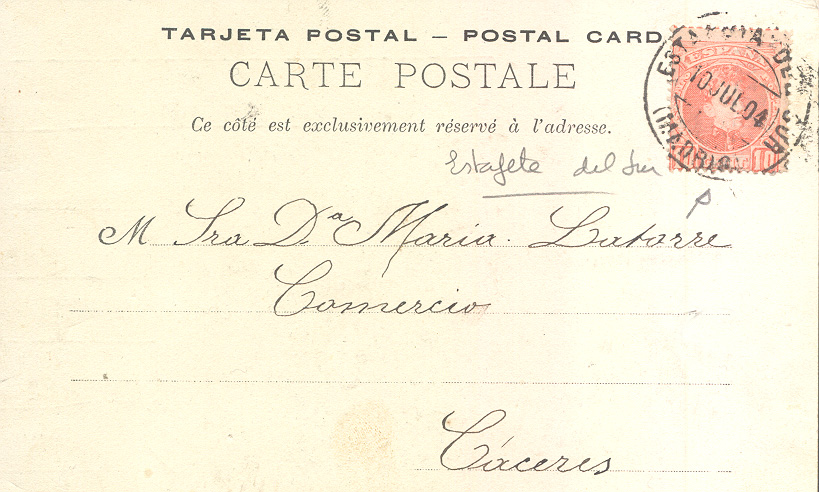 TARJETA POSTAL – POSTAL CARD
CARTE POSTALE
Ce côté est exclusivement réservé à l'adresse.
ESTAFETA DEL SUR
10 JUL 04
(MADRID)
ESPAÑA
10
Estafeta del Sur
M Sra Dª Maria Latorre
Comercio
Cáceres